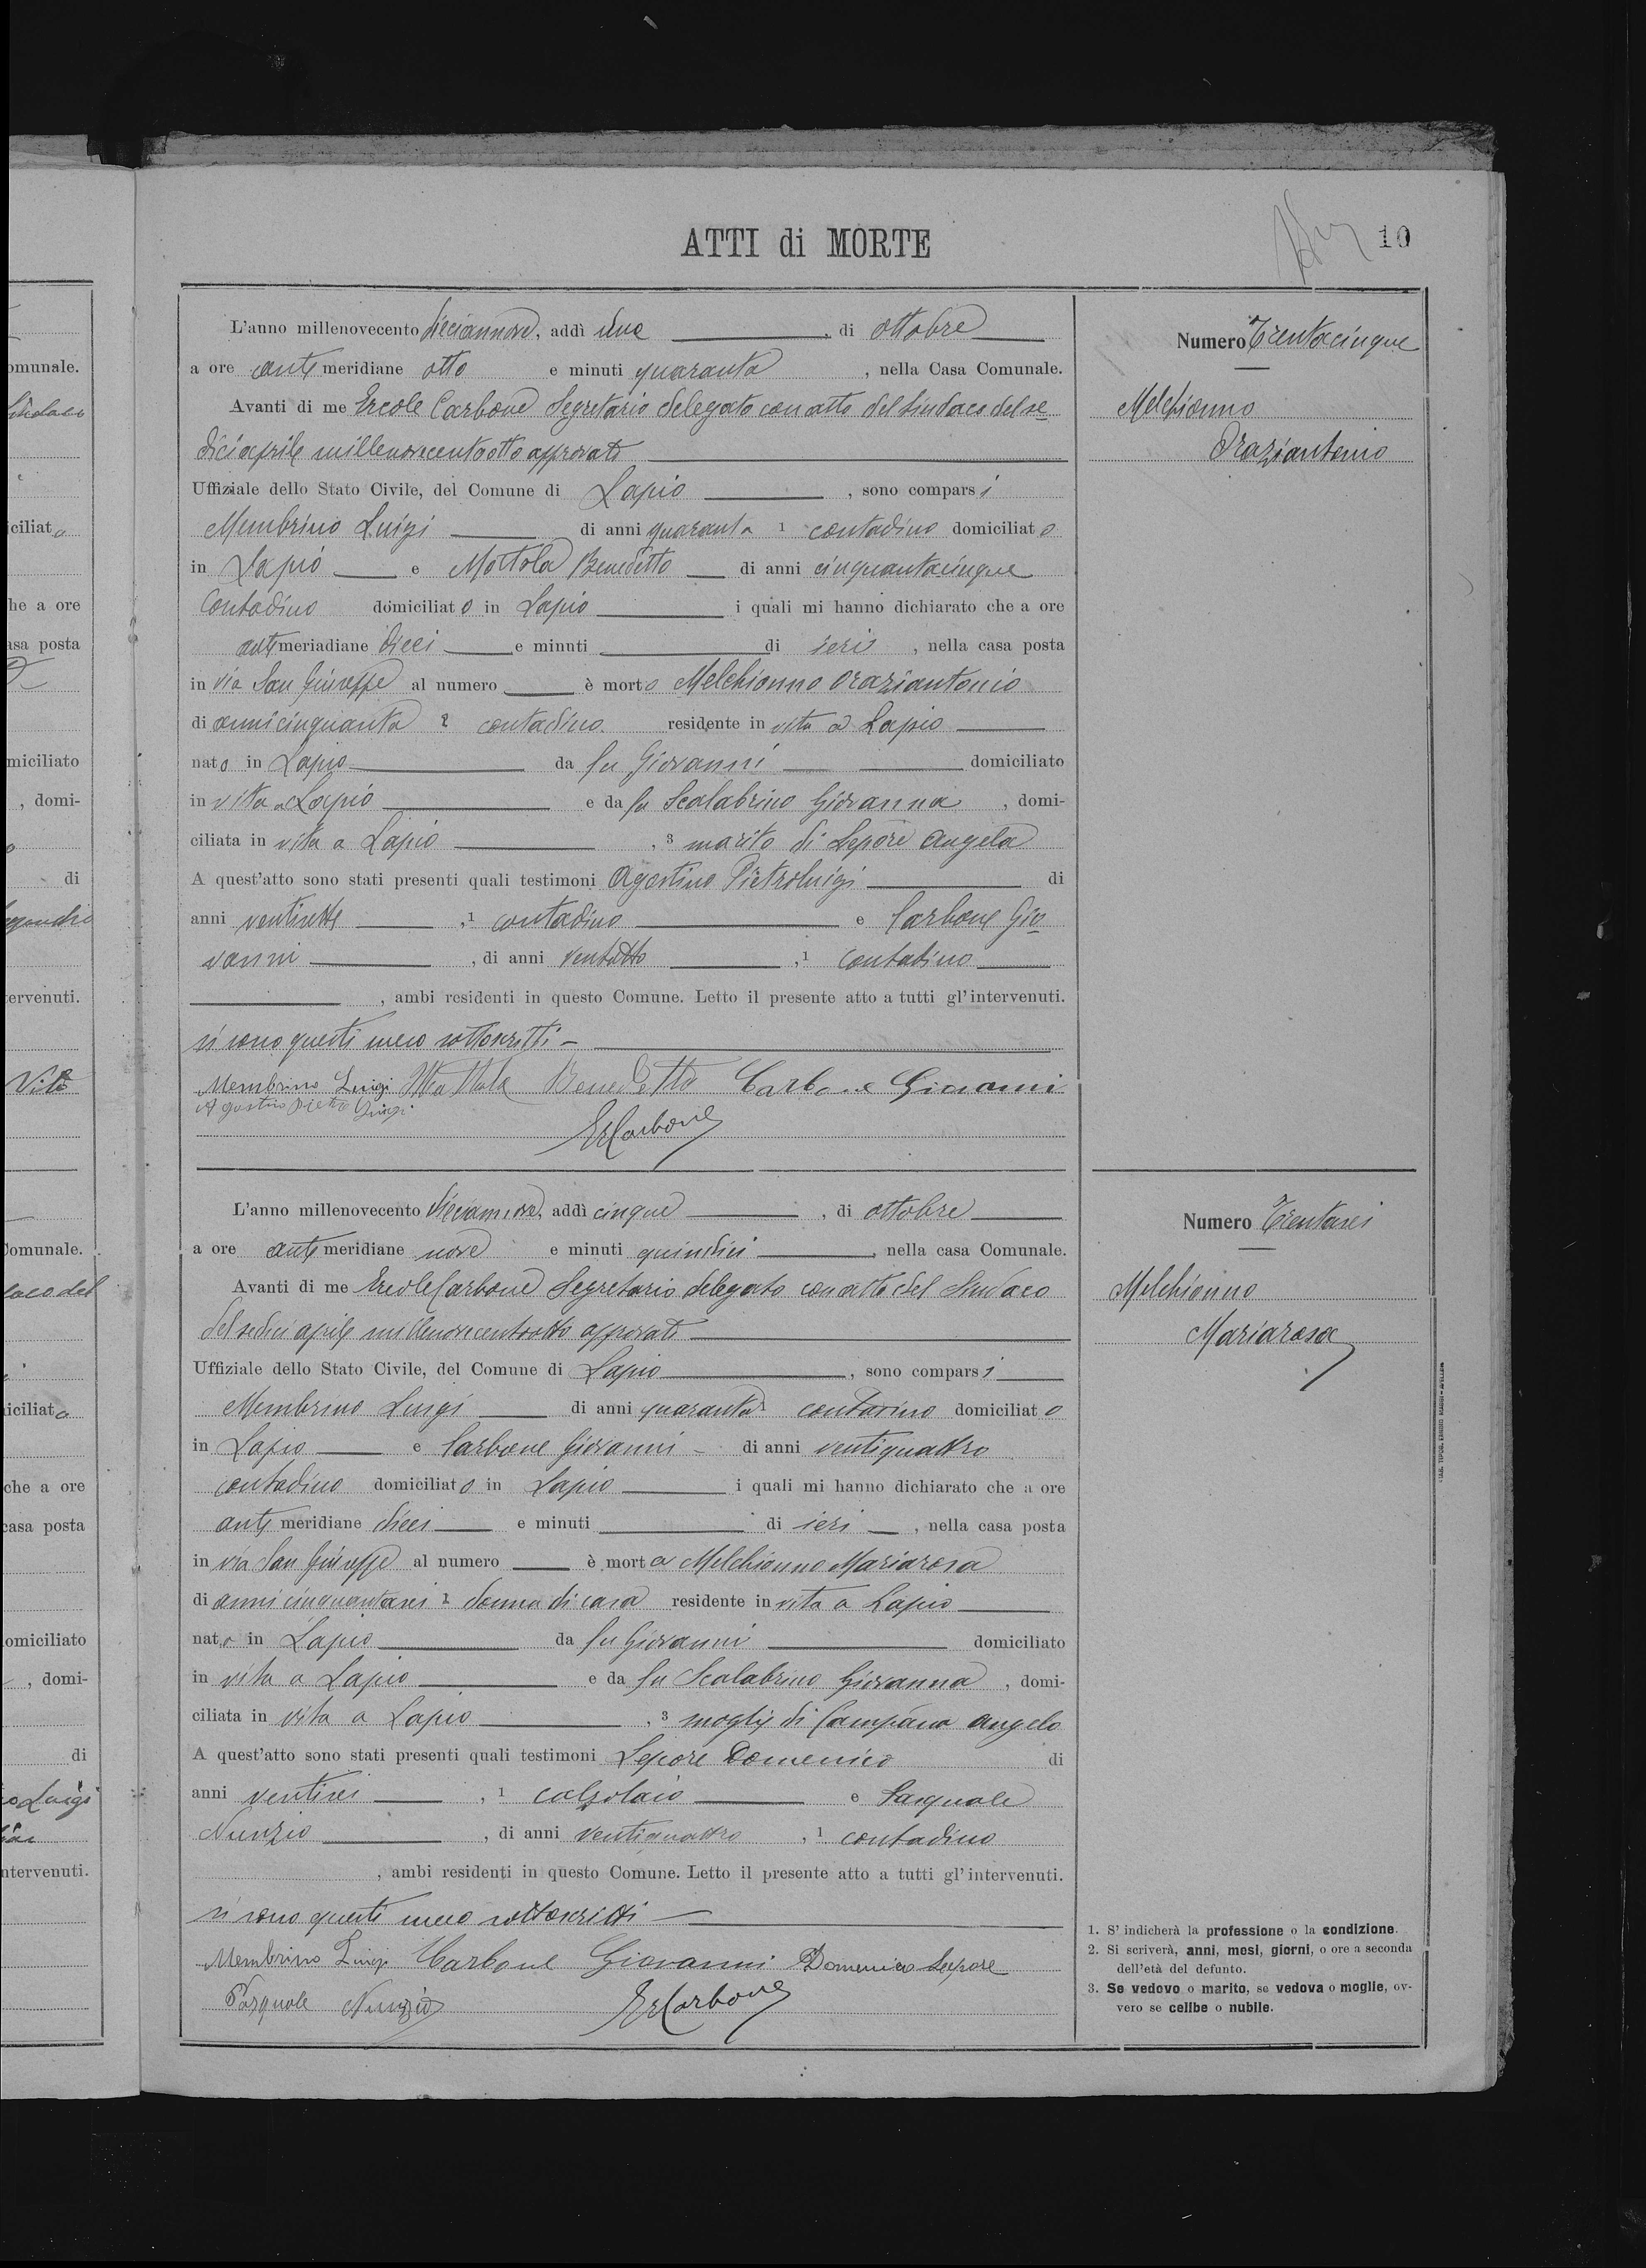 ATTI di MORTE
10
L'anno millenovecento diciannove, addì due, di ottobre
a ore antimeridiane otto e minuti quaranta, nella Casa Comunale.
Avanti di me Ercole Carbone Segretario delegato con atto del Sindaco del se
dici aprile millenovecentootto approvato
Uffiziale dello Stato Civile, del Comune di Lapio, sono comparsi
Membrino Luigi di anni quaranta 1 contadino domiciliato
in Lapio e Mottola Benedetto di anni cinquantacinque
Contadino domiciliato in Lapio i quali mi hanno dichiarato che a ore
antimeriadiane dieci e minuti di ieri, nella casa posta
in via San Giuseppe al numero è morto Melchionno Oraziantonio
di anni cinquanta 2 contadino residente in vita a Lapio
nato in Lapio da fu Giovanni domiciliato
in vita a Lapio e da fu Scalabrino Giovanna, domi-
ciliata in vita a Lapio, 3 marito di Lepore Angela
A quest'atto sono stati presenti quali testimoni Agostino Pietroluigi di
anni ventisette, 1 contadino e Carbone Gio
vanni, di anni ventotto, 1 contadino
, ambi residenti in questo Comune. Letto il presente atto a tutti gl'intervenuti.
si sono questi meco sottoscritti -
Membrino Luigi Mottola Benedetto Carbone Giovanni
Agostino Pietro Luigi
ErCarbone
Numero Trentacinque
Melchionno
Oraziantonio
L'anno millenovecento diciannove, addì cinque, di ottobre
a ore antimeridiane nove e minuti quindici, nella casa Comunale.
Avanti di me Ercole Carbone Segretario delegato con atto del Sindaco
del sedici aprile millenovecentootto approvato
Uffiziale dello Stato Civile, del Comune di Lapio, sono comparsi
Membrino Luigi di anni quaranta contadino domiciliato
in Lapio e Carbone Giovanni - di anni ventiquattro
contadino domiciliato in Lapio i quali mi hanno dichiarato che a ore
antimeridiane dieci e minuti di ieri, nella casa posta
in via San Giuseppe al numero è morta Melchionno Mariarosa
di anni cinquantasei 2 donna di casa residente in vita a Lapio
nata in Lapio da fu Giovanni domiciliato
in vita a Lapio e da fu Scalabrino Giovanna, domi-
ciliata in vita a Lapio, 3 moglie di Campana Angelo
A quest'atto sono stati presenti quali testimoni Lepore Domenico di
anni ventisei, 1 calzolaio e Pasquale
Nunzio, di anni ventiquattro, 1 contadino
, ambi residenti in questo Comune. Letto il presente atto a tutti gl'intervenuti.
si sono questi meco sottoscritti
Membrino Luigi Carbone Giovanni Domenico Lepore
Pasquale Nunzio ErCarbone
Numero Trentasei
Melchionno
Mariarosa
1. S'indicherà la professione o la condizione.
2. Si scriverà, anni, mesi, giorni, o ore a seconda
dell'età del defunto.
3. Se vedovo o marito, se vedova o moglie, ov-
vero se celibe o nubile.